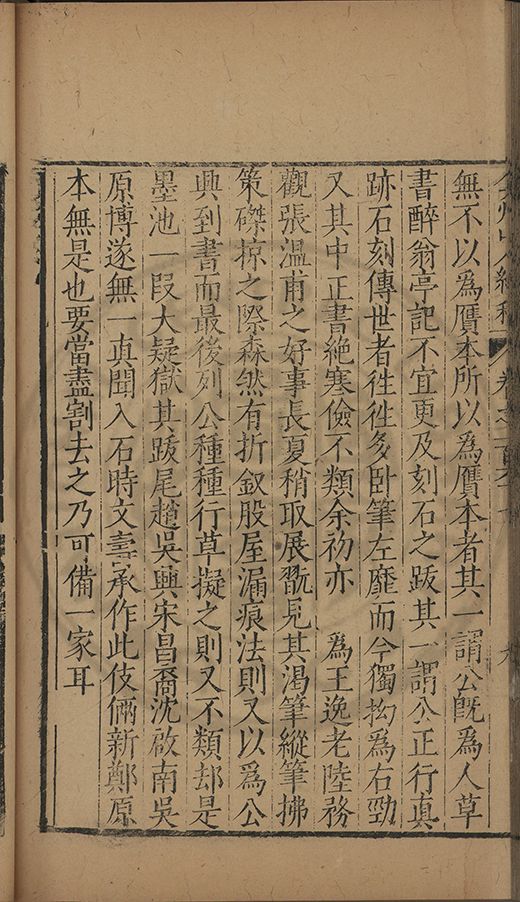 無不以爲贋本所以爲贋本者其一謂公旣爲人草
書醉翁亭記不宜更及刻石之跋其一謂公正行真
跡石刻傳世者徃徃多卧筆左靡而今獨拗爲右勁
又其中正書絕寒儉不類余初亦　爲王逸老陸務
觀張溫甫之好事長夏稍取展翫見其渴筆縱筆拂
策磔掠之際森然有折釵股屋漏痕法則又以爲公
興到書而最後列公種種行草擬之則又不類却是
墨池一段大疑獄其跋尾趙吳興宋昌裔沈啟南吳
原博遂無一真聞入石時文壽承作此伎倆新鄭原
本無是也要當盡割去之乃可備一家耳